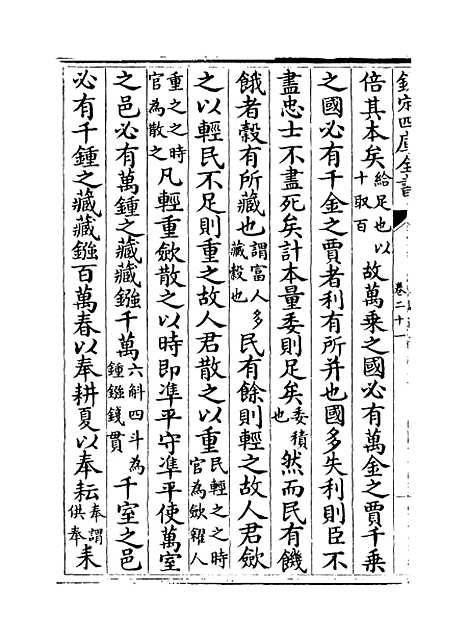 欽定四庫全書
卷二十一
倍其本矣給足也以十取百故萬乗之國必有萬金之賈千乗
之國必有千金之賈者利有所并也國多失利則臣不
盡忠士不盡死矣計本量委則足矣委積也然而民有饑
餓者糓有所藏也謂富人多藏糓也民有餘則輕之故人君歛
之以輕民不足則重之故人君散之以重民輕之之時官為歛糴人
重之之時官為散之凡輕重歛散之以時即凖平守凖平使萬室
之邑必有萬鍾之藏藏鏹千萬六斛四斗為鍾鏹錢貫千室之邑
必有千鍾之藏藏鏹百萬春以奉耕夏以奉耘奉謂供奉耒